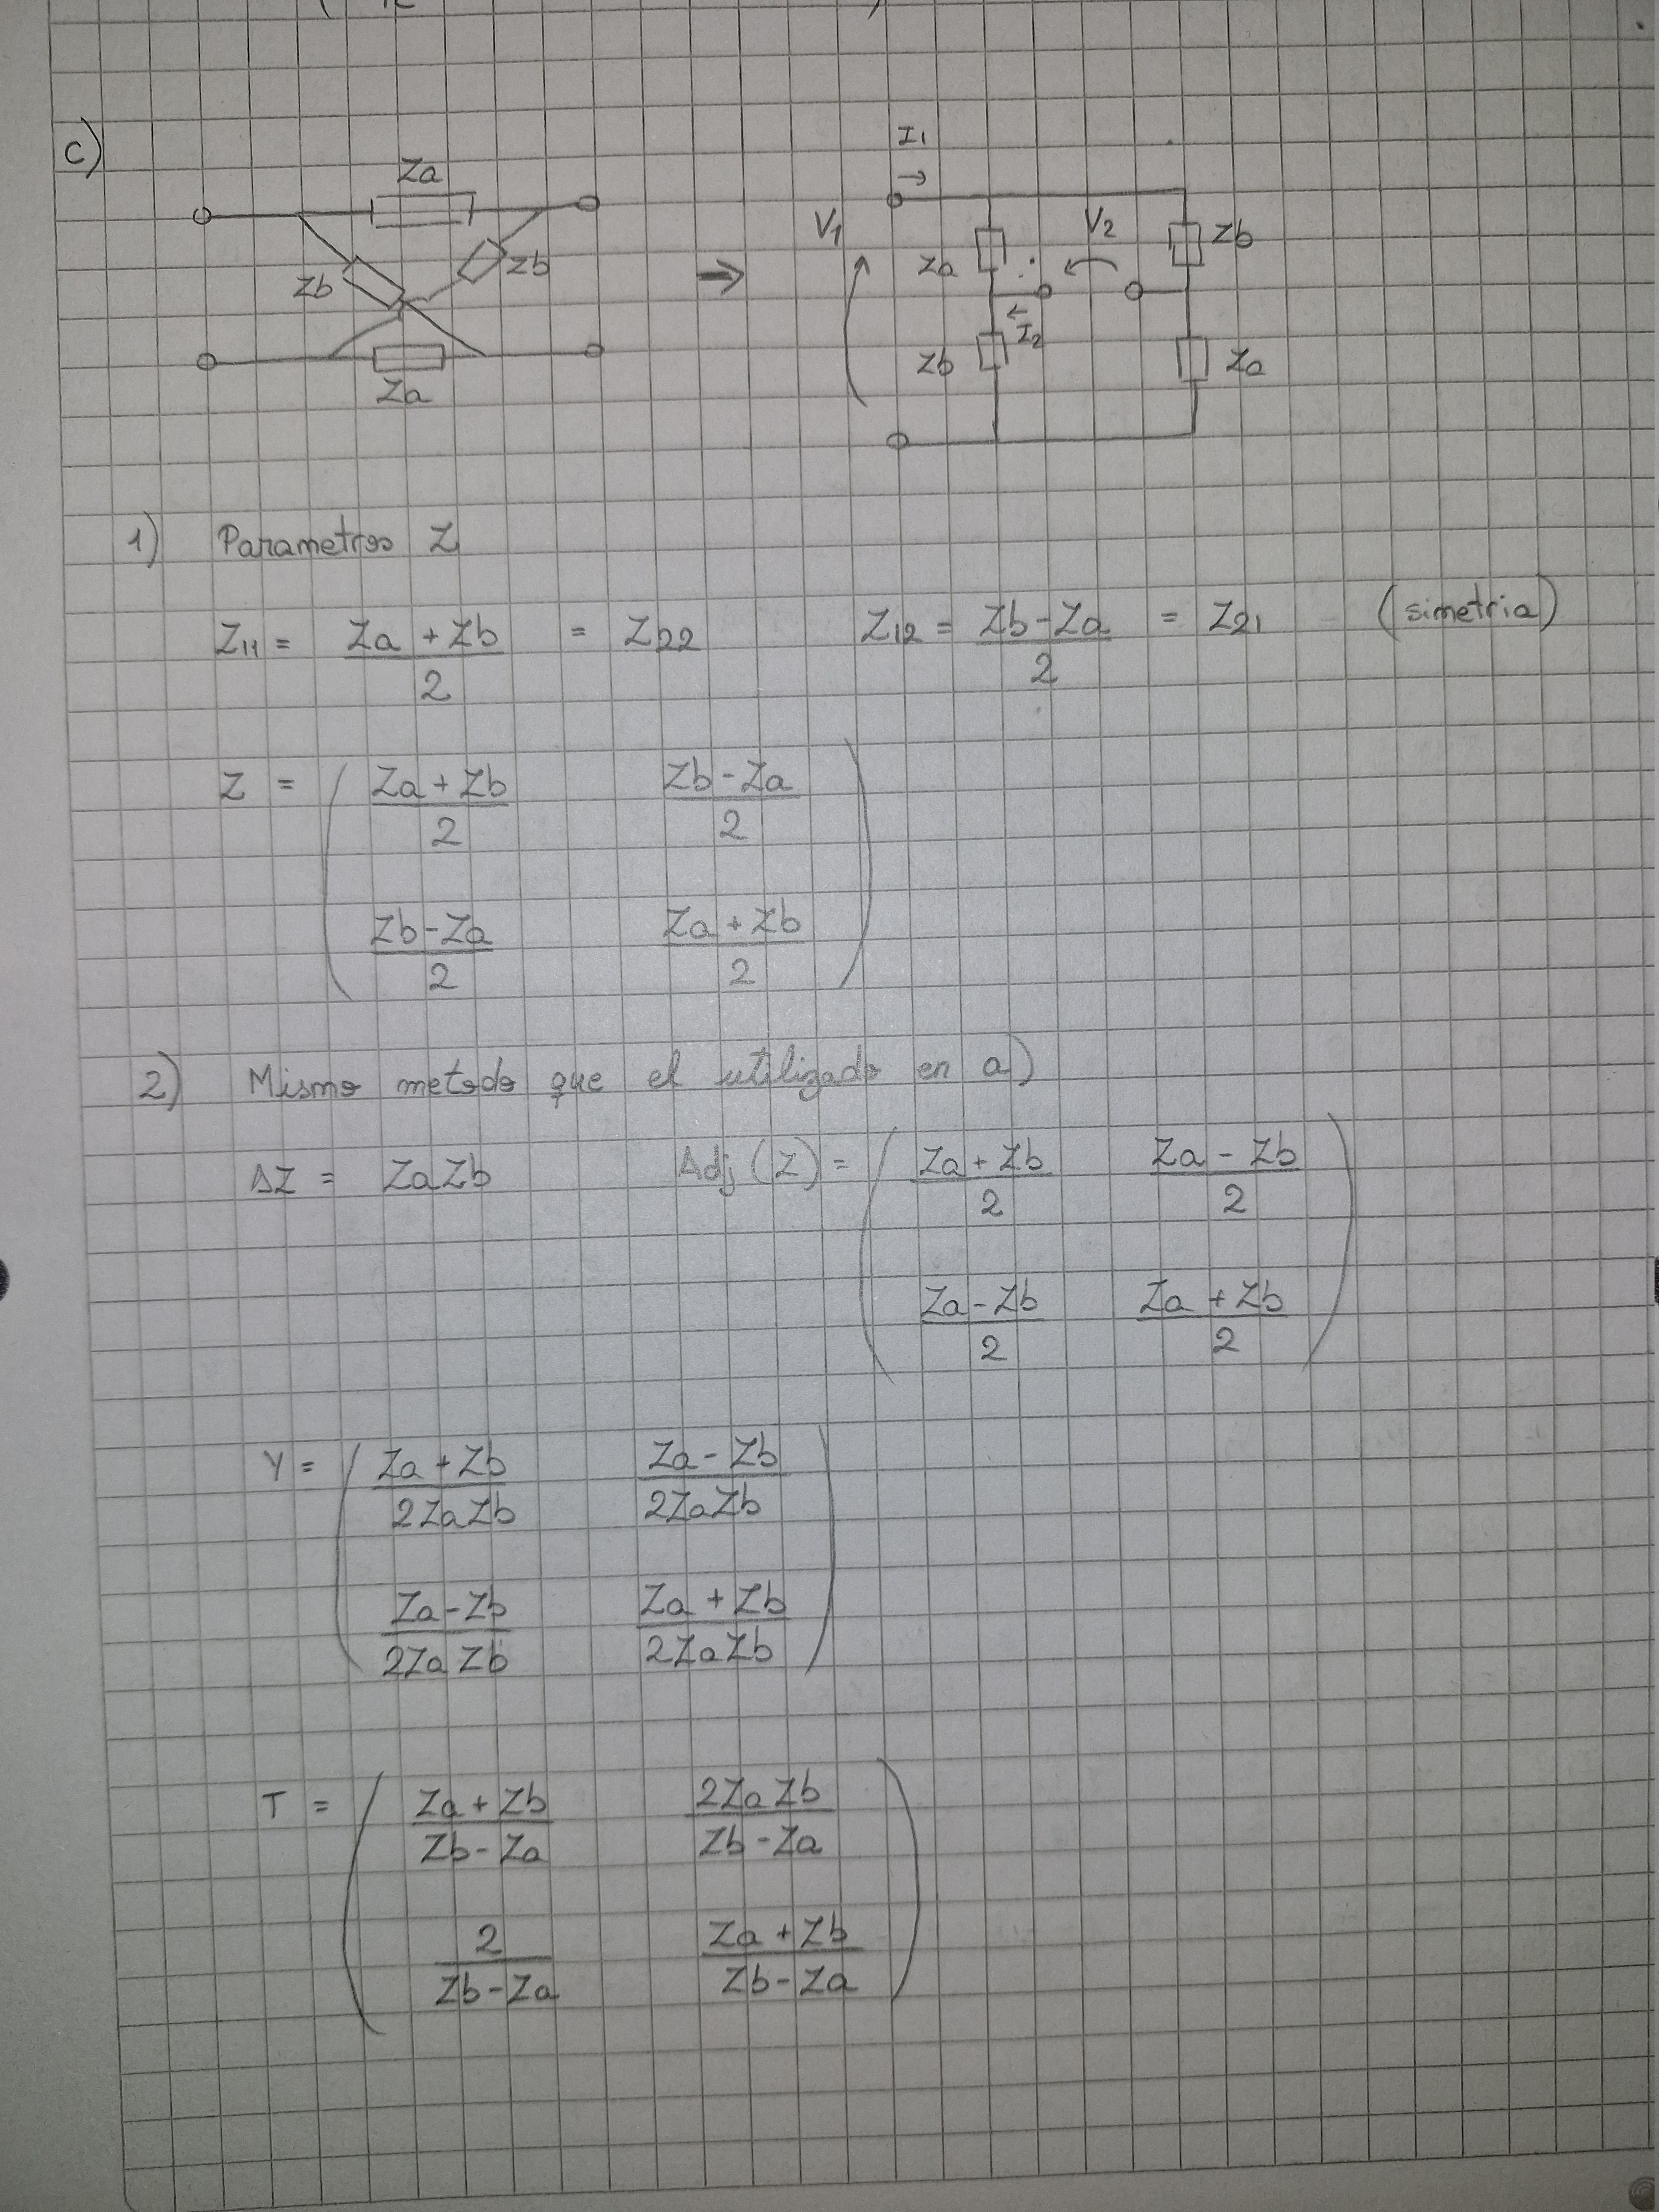 c)
Za
Zb
Zb
Za
⇒
I1
→
V1
V2
Za
Zb
←
I2
Zb
Za
1) Parametros Z
Z11 = (Za + Zb)/2 = Z22    Z12 = (Zb - Za)/2 = Z21    (simetria)
Z = ( (Za + Zb)/2    (Zb - Za)/2
(Zb - Za)/2    (Za + Zb)/2 )
2) Mismo metodo que el utilizado en a)
ΔZ = ZaZb    Adj (Z) = ( (Za + Zb)/2    (Za - Zb)/2
(Za - Zb)/2    (Za + Zb)/2 )
Y = ( (Za + Zb)/(2ZaZb)    (Za - Zb)/(2ZaZb)
(Za - Zb)/(2ZaZb)    (Za + Zb)/(2ZaZb) )
T = ( (Za + Zb)/(Zb - Za)    (2ZaZb)/(Zb - Za)
2/(Zb - Za)    (Za + Zb)/(Zb - Za) )